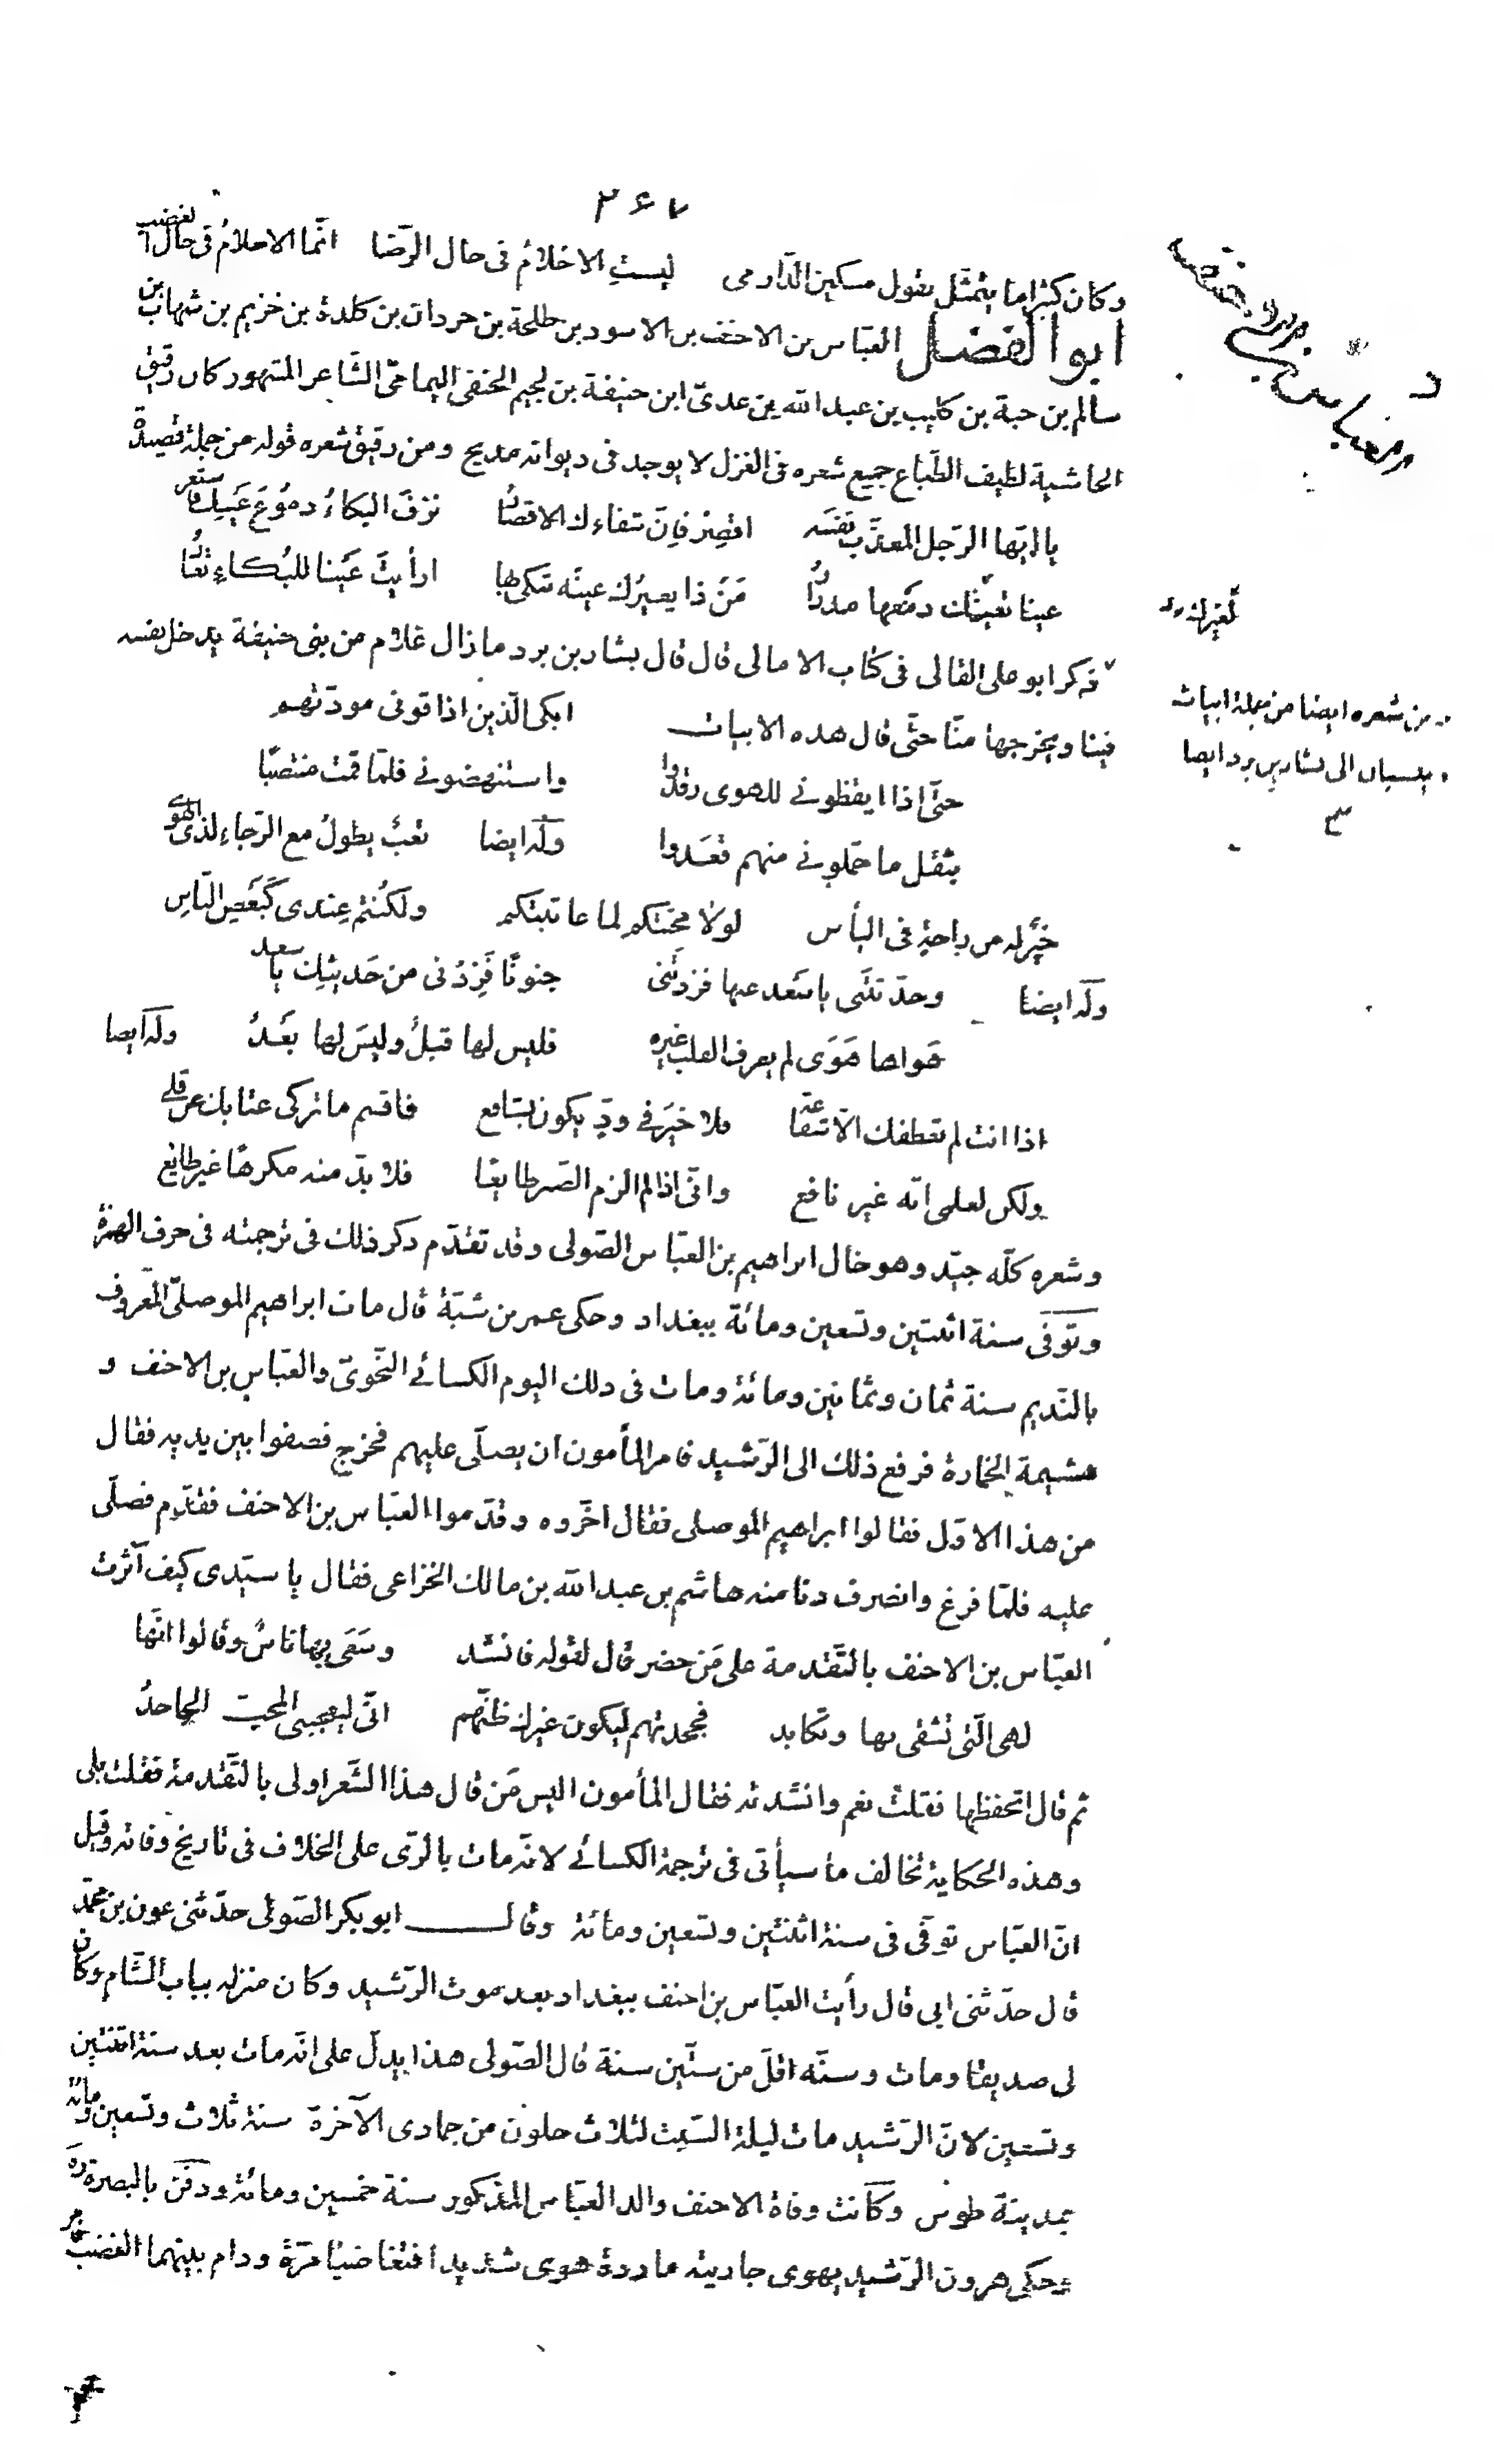 ۲۶۷
وكان كثيرا ما يتمثّل بقول مسكين الدّارمى ليستِ الاحلامُ فى حال الرّضا انّما الاحلامُ فى حال الغضب
ابو الفضل العبّاس بن الاحنف بن الاسود بن طلحة بن حردان بن كلدة بن خزيم بن شهاب بن
سالم بن حبة بن كليب بن عبد الله بن عدىّ ابن حنيفة بن لجيم الحنفى اليمامىّ الشّاعر المشهور كان رقيق
الحاشية لطيف الطّباع جميع شعره فى الغزل لا يوجد فى ديوانه مديح ومن رقيق شعره قوله من جملة قصيدة
يا ايّها الرّجل المعذّب نفسَه اقصِرْ فاِنّ شفاءك الاقصارُ نزفَ البكاءُ دموُعَ عَينِك فاستعر
عينا يعينُك دمعها مدرارُ مَنْ ذا يعيرُك عينَه تبكى بها ارأيتَ عَينا للبُكاءِ تعارُ
لغيرك
ذكر ابو على القالى فى كتاب الامالى قال قال بشار بن برد ما زال غلام من بنى حنيفة يدخل نفسه
فينا ويخرجها منّا حتّى قال هذه الابيات ابكى الّذين اذاقونى مودّتهم
ومن شعره ايضا من جملة ابيات
وينسبان الى بشار بن برد ايضا
حتّى اذا ايقظونى للهوى رقدُوا واستنهضونى فلمّا قمت منتصبًا
بثقل ما حمّلونى منهم قعَدوا ولَه ايضا تعبٌ يطولُ مع الرّجاءِ لذى الهوى
خيرٌ له من راحةٍ فى اليأس لولا محبّتكم لما عاتبتكم ولكُنتُم عِندى كَبَعَضِ النّاسِ
ولَه ايضا وحدّثتنى يا سَعد عنها فزدتَنى جنونًا فَزِدْنى من حَديثِك يا سعد
هَواها هَوَى لم يعرف القلب غيره فليس لها قبلٌ وليسَ لها بَعَدُ ولَه ايضا
اذا انت لم تعطفك الّا شفاعة فلا خيَر فى ودٍّ يكون بشافع فاقسم ما تركى عتابك عن قلى
ولكن لعلمى انّه غير نافع وانّى اذا لم الزم الصّبر طايعًا فلا بدّ منه مكرهًا غير طايع
وشعره كلّه جيّد وهو خال ابراهيم بن العبّاس الصّولى وقد تقدّم ذكر ذلك فى ترجمته فى حرف الهمزة
وتوّفى سنة اثنتين وتسعين ومائة ببغداد وحكى عمر بن شبّة قال مات ابراهيم الموصلىّ المعروف
بالنّديم سنة ثمان وثمانين ومائة ومات فى ذلك اليوم الكسائى النّحوىّ والعبّاس بن الاحنف و
هشيمة الخمارة فرفع ذلك الى الرّشيد فامر المأمون ان يصلّى عليهم فخرج فصفوا بين يديه فقال
من هذا الاوّل فقالوا ابراهيم الموصلى فقال اخّروه وقدّموا العبّاس بن الاحنف فقدّم فصلّى
عليه فلمّا فرغ وانصرف دنا منه هاشم بن عبد الله بن مالك الخزاعى فقال يا سيّدى كيف آثرت
العبّاس بن الاحنف بالتّقدمة على مَن حضر قال لقوله فانشد وسَعَى بها ناسٌ وقالوا انّها
لهى الّتى تشقى بها وتكابد فجحدتهم ليكون غيرك ظنّهم انّى ليعجبنى المحبّ الجاحدُ
ثم قال اتحفظها فقلت نعم وانشدته فقال المأمون اليس مَن قال هذا الشّعر اولى بالتّقدمة فقلت بلى
وهذه الحكاية تخالف ما سيأتى فى ترجمة الكسائى لانّه مات بالرّى على الخلاف فى تاريخ وفاته وقيل
انّ العبّاس توفّى فى سنة اثنتين وتسعين ومائة وقال ابو بكر الصّولى حدّثنى عون بن محمّد
قال حدّثنى ابى قال رأيت العبّاس بن احنف ببغداد بعد موت الرّشيد وكان منزله بباب الشّام وكان
لى صديقا ومات وسنّه اقلّ من ستّين سنة قال الصّولى هذا يدلّ على انّه مات بعد سنة اثنتين
وتسعين لانّ الرّشيد مات ليلة السّبت لثلاث خلون من جمادى الآخرة سنة ثلاث وتسعين ومائة
بمدينة طوس وكانت وفاة الاحنف والد العبّاس المذكور سنة خمسين ومائة ودفن بالبصرة
وحكى هرون الرّشيد يهوى جاريته ماردة هوى شديدا فتغاضبا مرّة ودام بينهما الغضب